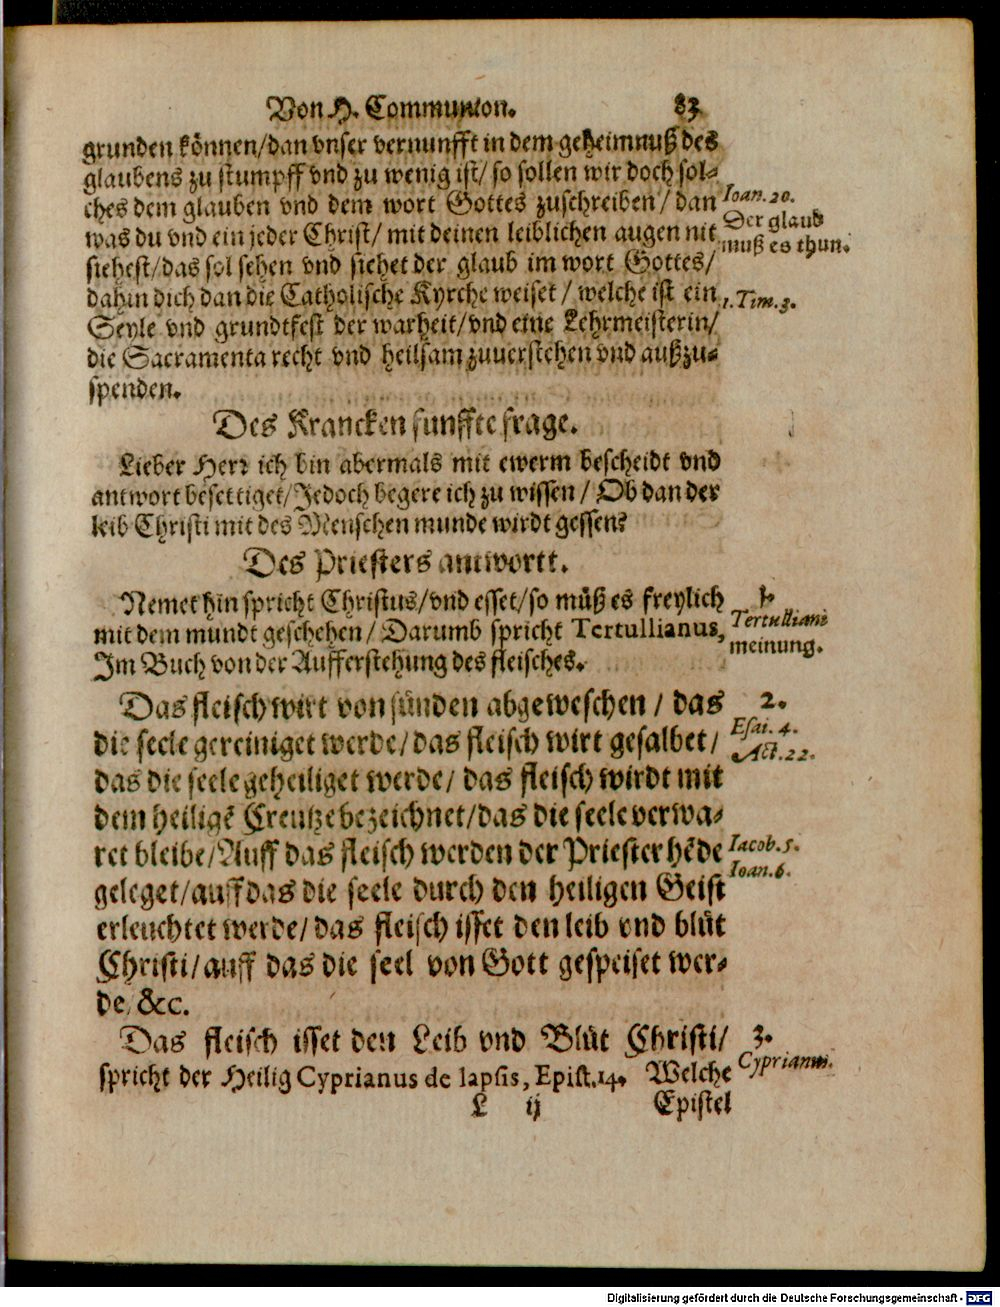 Von H. Communion. 83
grunden können/dan vnser vernunfft in dem geheimnuß des
glaubens zu stumpff vnd zu wenig ist/ so sollen wir doch sol-
ches dem glauben vnd dem wort Gottes zuschreiben/ dan
Ioan. 20.
was du vnd ein jeder Christ/ mit deinen leiblichen augen nit
Der glaub
muß es thun.
siehest/das sol sehen vnd siehet der glaub im wort Gottes/
dahin dich dan die Catholische Kyrche weiset / welche ist ein
1. Tim. 3.
Seyle vnd grundtfest der warheit/vnd eine Lehrmeisterin/
die Sacramenta recht vnd heilsam zuuerstehen vnd außzu-
spenden.
Des Krancken funffte frage.
Lieber Herr ich bin abermals mit ewerm bescheidt vnd
antwort besettiget/Jedoch begere ich zu wissen / Ob dan der
leib Christi mit des Menschen munde wirdt gessen?
Des Priesters antwortt.
Nemet hin spricht Christus/vnd esset/so müß es freylich
1.
mit dem mundt geschehen/ Darumb spricht Tertullianus,
Tertulliani
meinung.
Im Buch von der Aufferstehung des fleisches.
Das fleisch wirt von sünden abgeweschen / das
2.
die seele gereiniget werde/das fleisch wirt gesalbet/
Esai. 4.
Act. 22.
das die seele geheiliget werde/ das fleisch wirdt mit
dem heiligē Creutze bezeichnet/das die seele verwa-
ret bleibe/Auff das fleisch werden der Priester hēde
Iacob. 5.
Ioan. 6.
geleget/auff das die seele durch den heiligen Geist
erleuchtet werde/das fleisch isset den leib vnd blůt
Christi/auff das die seel von Gott gespeiset wer-
de, &c.
Das fleisch isset den Leib vnd Blůt Christi/
3.
spricht der Heilig Cyprianus de lapsis, Epist. 14. Welche
Cyprianus.
L ij Epistel
Digitalisierung gefördert durch die Deutsche Forschungsgemeinschaft - DFG